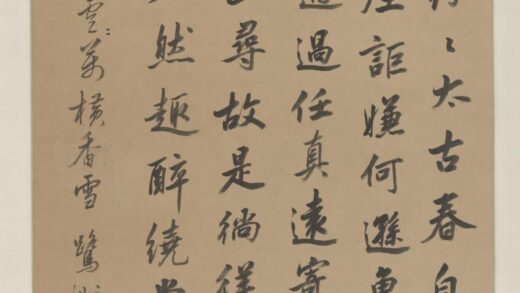 太古春自
詎嫌何遜
過任真遠寄
尋故是徜徉
然趣醉繞
雲萬橫香雪 鷺